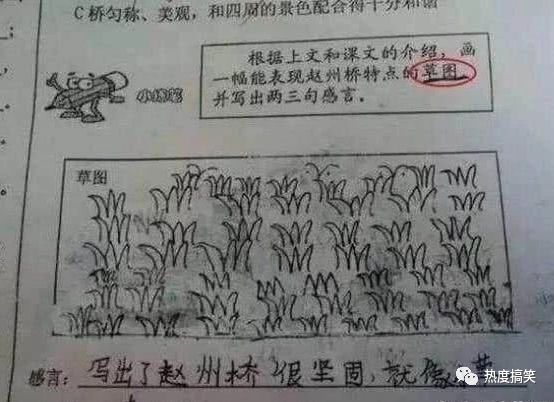 C桥匀称、美观，和四周的景色配合得十分和谐
根据上文和课文的介绍，画
一幅能表现赵州桥特点的草图，
并写出两三句感言。
小练笔
草图
感言：写出了赵州桥很坚固，就像
热度搞笑